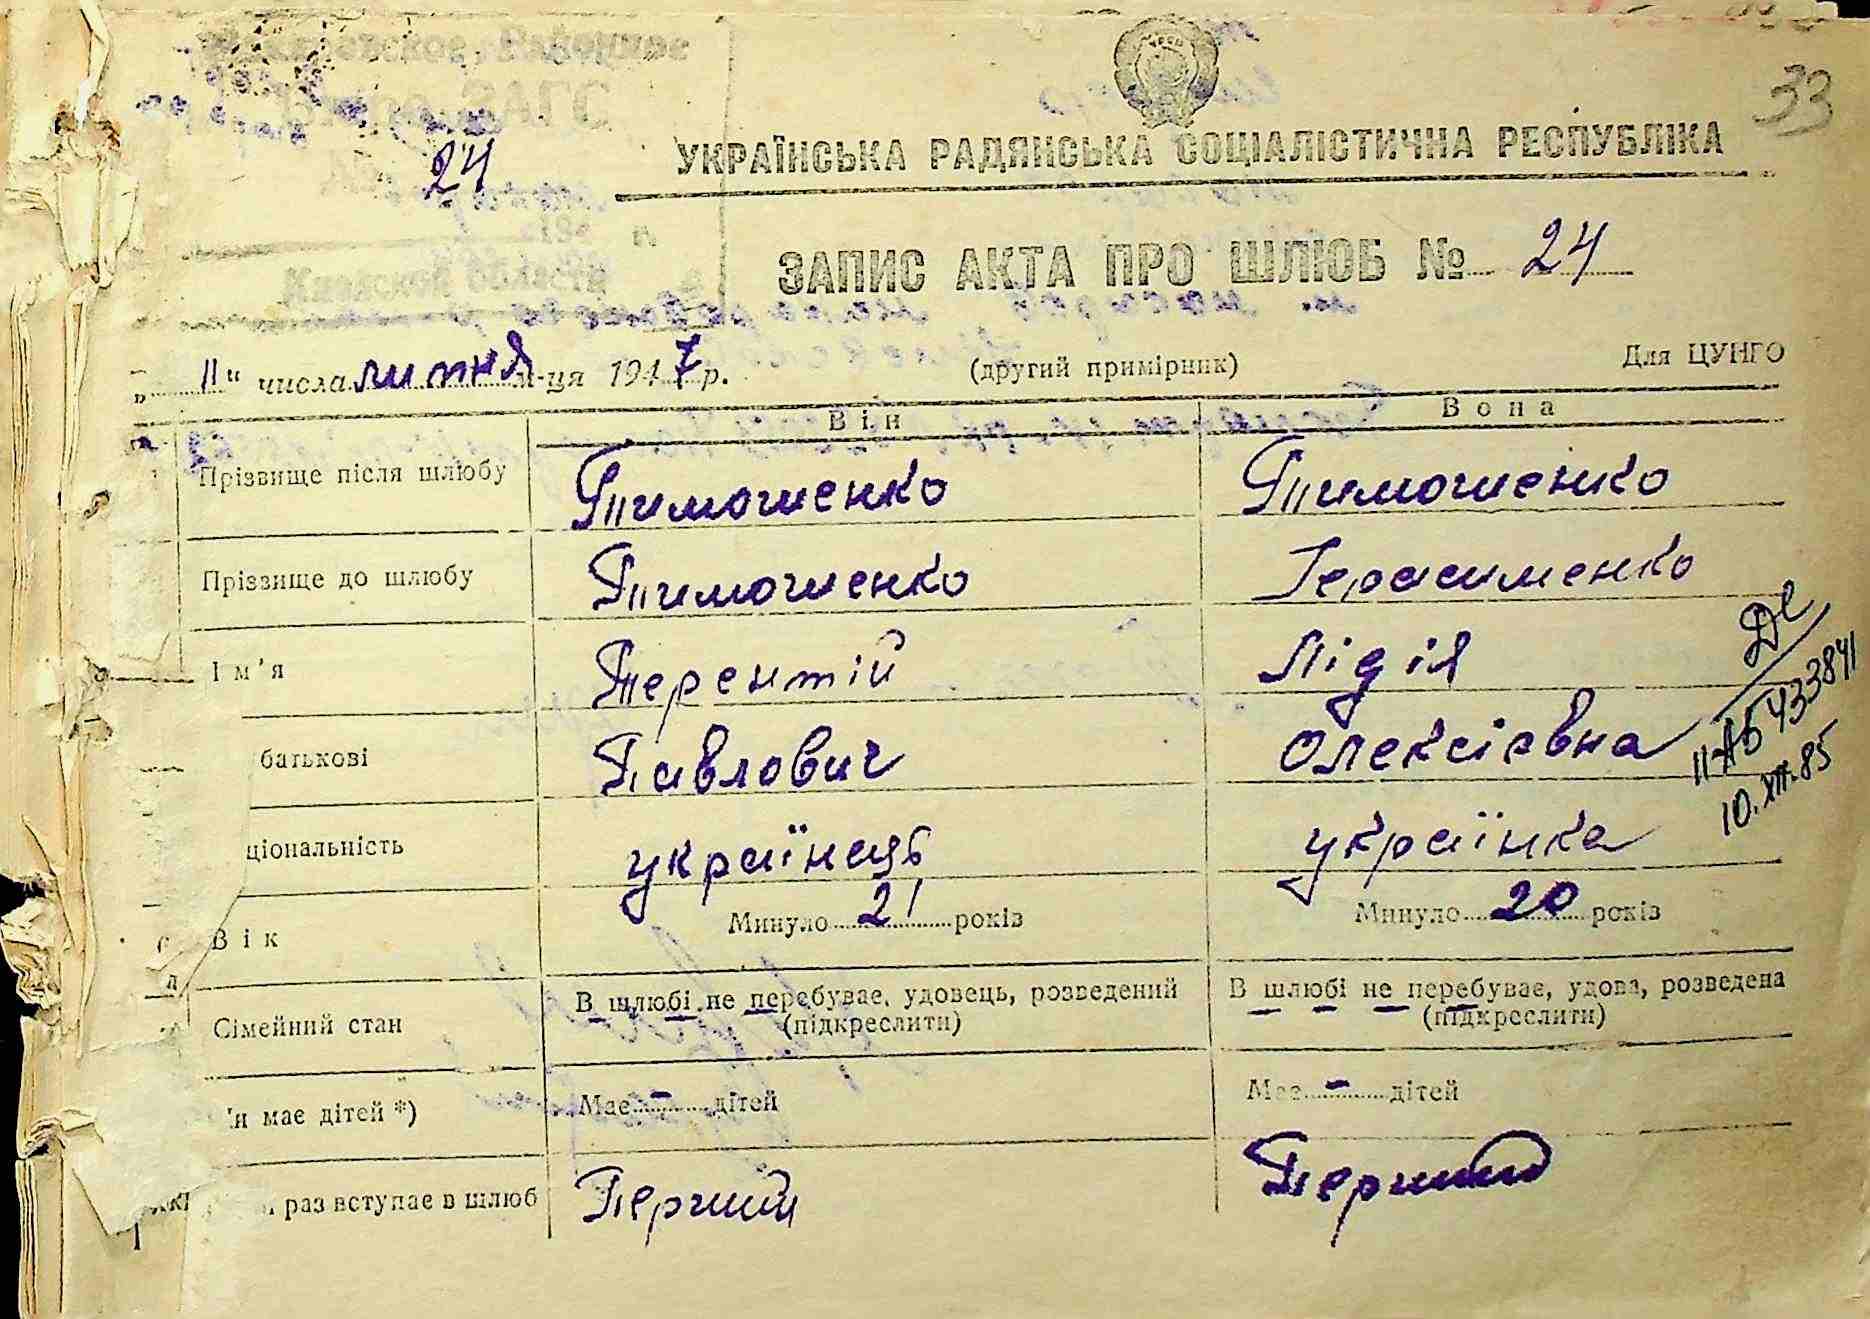 Районное
ЗАГС
24
33
УКРАЇНСЬКА РАДЯНСЬКА СОЦІАЛІСТИЧНА РЕСПУБЛІКА
Киевской области
ЗАПИС АКТА ПРО ШЛЮБ № 24
„ 11 " числа липня м-ця 1947 р. (другий примірник) Для ЦУНГО
Він Вона
Прізвище після шлюбу Тимошенко Тимошенко
Прізвище до шлюбу Тимошенко Герасименко
Ім'я Терентій Лідія
батькові Павлович Олексієвна
II-АБ 433841
10.XII.85
ціональність українець українка
Вік Минуло 21 років Минуло 20 років
Сімейний стан В шлюбі не перебуває, удовець, розведений В шлюбі не перебуває, удова, розведена
(підкреслити) (підкреслити)
и має дітей *) Має - дітей Має - дітей
раз вступає в шлюб Перший Перший